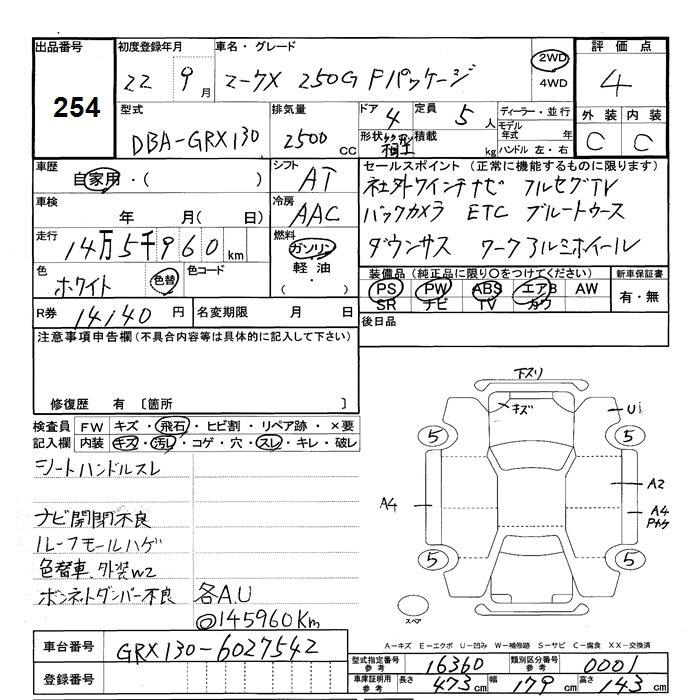 出品番号 初度登録年月 車名・グレード 評価点
254
22 9月 マークX 250G Fパッケージ 2WD 4WD 4
外装 内装
C C
型式 排気量 ドア 定員 ディーラー・並行
DBA-GRX130 2500cc 4 5人 モデル年式 年
形状 積載 kg ハンドル 左・右
車歴 シフト セールスポイント(正常に機能するものに限ります)
自家用・( ) AT 社外ワインチナビ フルセグTV
車検 冷房 バックカメラ ETC ブルートゥース
年 月(日) AAC
走行 燃料 ダウンサス ワークアルミホイール
14万5千960km ガソリン
軽油
・
色 色コード 装備品(純正品に限り○をつけてください) 新車保証書
ホワイト 色替 PS PW ABS エアB AW 有・無
SR ナビ TV カワ
R券 14140円 名変期限 月 日 後日品
注意事項申告欄(不具合内容等は具体的に記入して下さい)
修復歴 有 〔箇所 〕
検査員 FW キズ・飛石・ヒビ割・リペア跡・×要
記入欄 内装 キズ・汚レ・コゲ・穴・スレ・キレ・破レ
シートハンドルスレ
ナビ開閉不良
ルーフモールハゲ
色替車、外装W2
ボンネットダンパー不良 各A.U
@145960Km
下スリ
キズ
U1
5 5
A2
A4 A4
5 5
スペア
A-キズ E-エクボ U-凹み W-補修跡 S-サビ C-腐食 XX-交換済
車台番号 GRX130-6027542
登録番号
型式指定番号 参考 16360 類別区分番号 参考 0001
車庫証明用 参考 長さ 473cm 幅 179cm 高さ 143cm